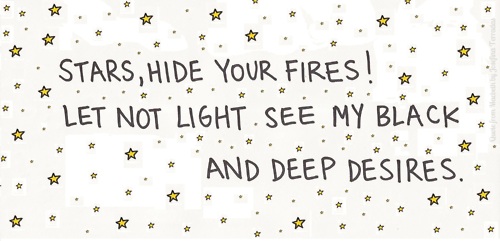 STARS, HIDE YOUR FIRES!
LET NOT LIGHT SEE MY BLACK
AND DEEP DESIRES.